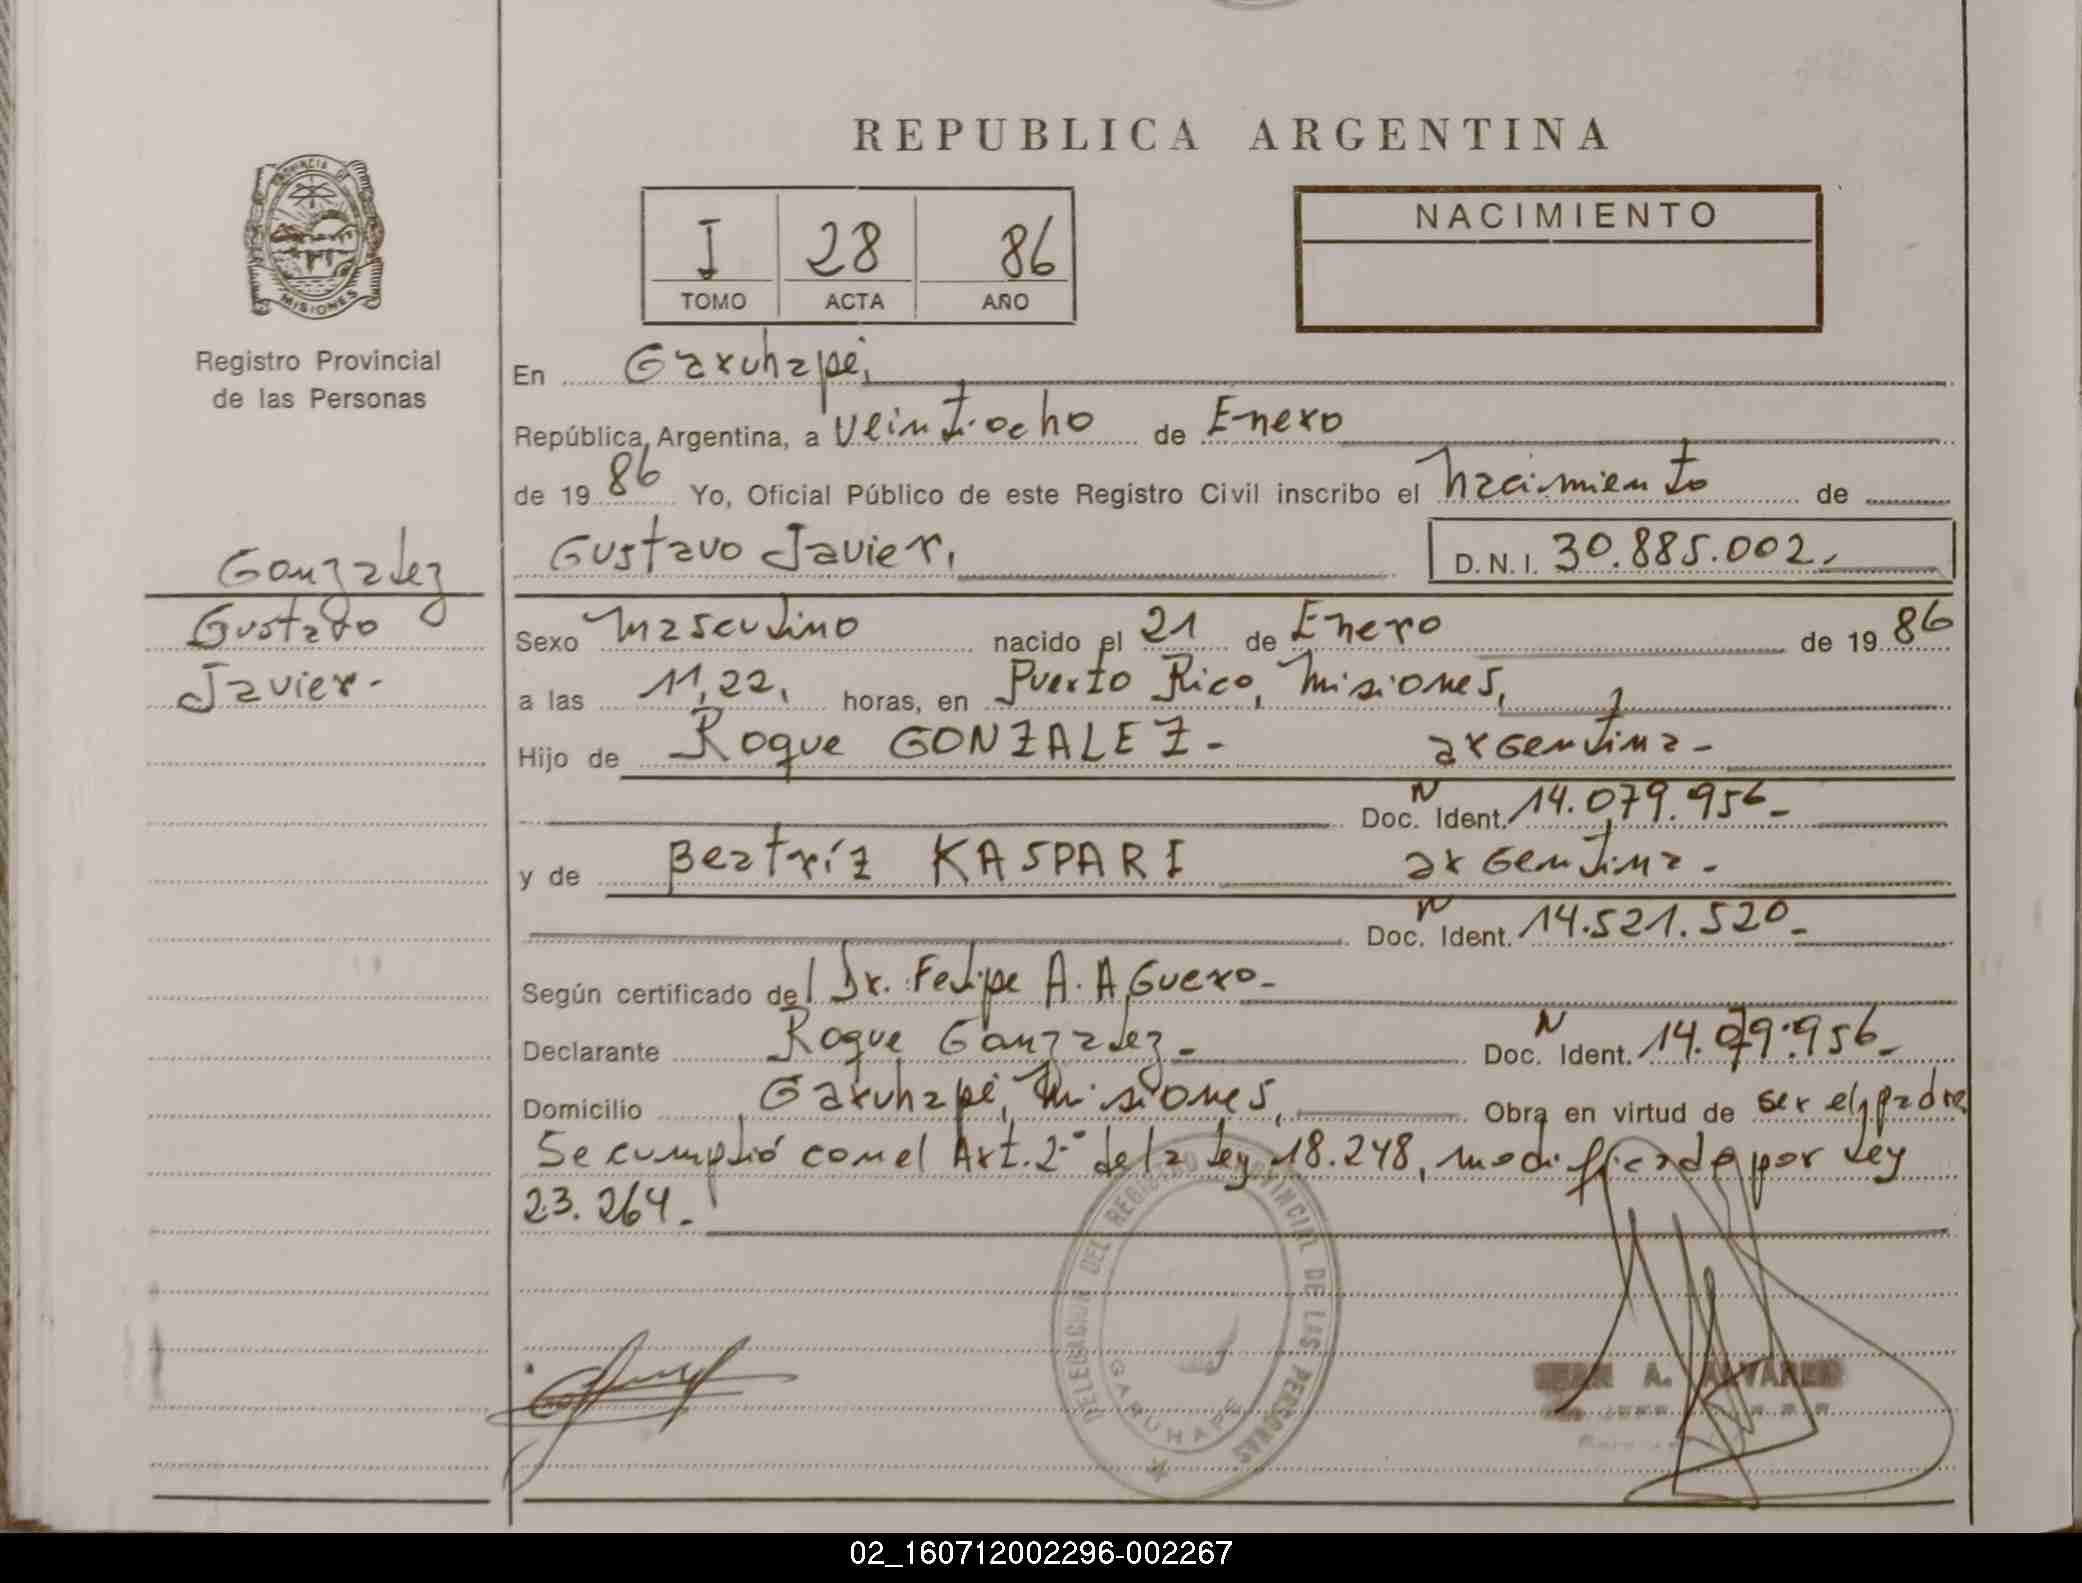 REPUBLICA ARGENTINA
PROVINCIA DE
MISIONES
Registro Provincial
de las Personas
I 28 86
TOMO ACTA AÑO
NACIMIENTO
En Garuhapé,
República Argentina, a veintiocho de Enero
de 19 86 Yo, Oficial Público de este Registro Civil inscribo el nacimiento de
Gustavo Javier, D.N.I. 30.885.002.
Gonzalez
Gustavo
Javier.-
Sexo masculino nacido el 21 de Enero de 19 86
a las 11,22, horas, en Puerto Rico, Misiones,
Hijo de Roque GONZALEZ- argentina-
Doc. N Ident. 14.079.956-
y de Beatríz KASPARI argentina.-
Doc. N Ident. 14.521.520-
Según certificado del Dr. Felipe A. Aguero-
Declarante Roque Gonzalez- Doc. N Ident. 14.079.956-
Domicilio Garuhapé, Misiones, Obra en virtud de ser el padre
Se cumplió con el Art. 2-° de la Ley 18.248, modificada por Ley
23.264.-
DELEGACION DEL REGISTRO PROVINCIAL DE LAS PERSONAS
GARUHAPE
A. ALVAREZ
02_160712002296-002267